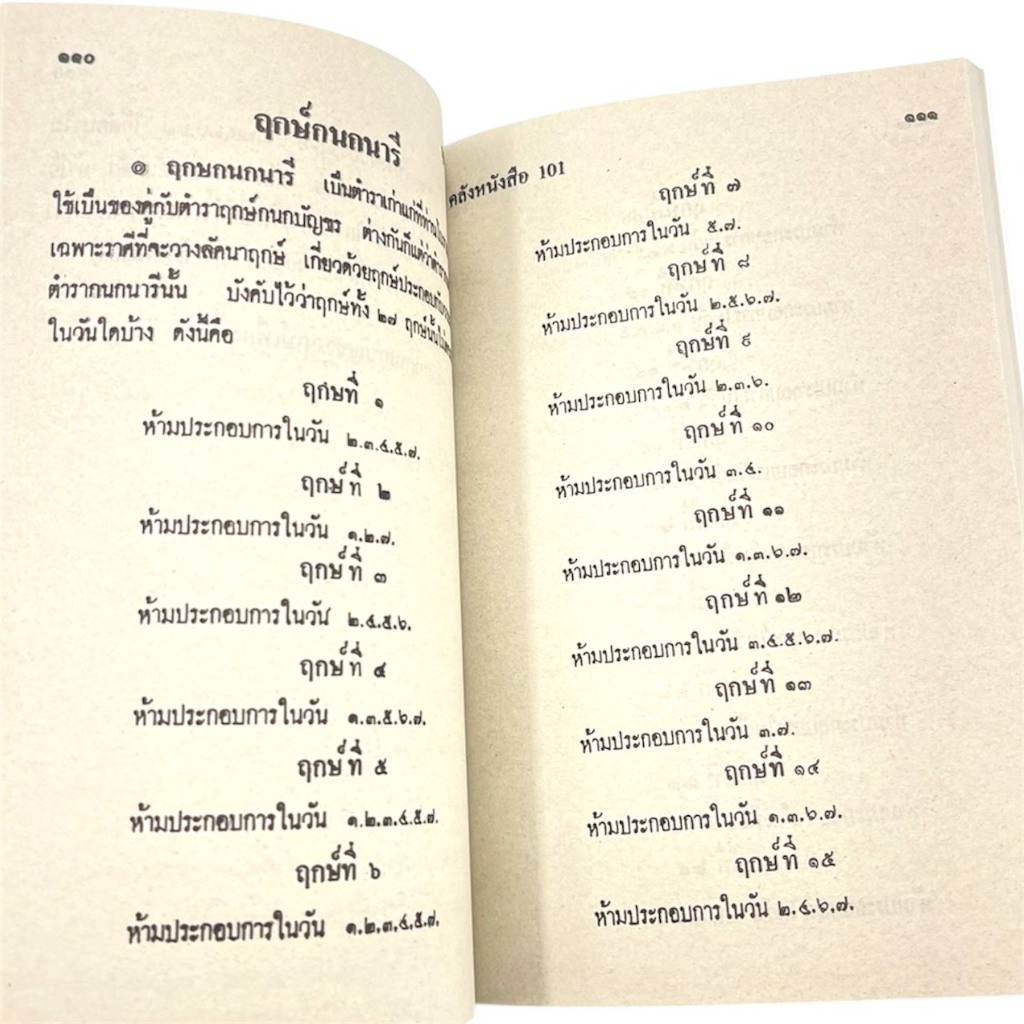 ๑๑๐
ฤกษ์กนกนารี
๏ ฤกษกนกนารี เป็นตำราเก่าแก่ที่ท่านโบ
ใช้เป็นของคู่กับตำราฤกษ์กนกบัญชร ต่างกันก็แต่ว่า
เฉพาะราศีที่จะวางลัคนาฤกษ์ เกี่ยวด้วยฤกษ์ประกอบ
ตำรากนกนารีนั้น บังคับไว้ว่าฤกษ์ทั้ง ๒๗ ฤกษ์นั้น
ในวันใดบ้าง ดังนี้คือ
ฤกษที่ ๑
ห้ามประกอบการในวัน ๒.๓.๔.๕.๗.
ฤกษ์ที่ ๒
ห้ามประกอบการในวัน ๑.๒.๗.
ฤกษ์ที่ ๓
ห้ามประกอบการในวัน ๒.๔.๕.๖.
ฤกษ์ที่ ๔
ห้ามประกอบการในวัน ๑.๓.๕.๖.๗.
ฤกษ์ที่ ๕
ห้ามประกอบการในวัน ๑.๒.๓.๔.๕.๗.
ฤกษ์ที่ ๖
ห้ามประกอบการในวัน ๑.๒.๓.๔.๕.๗.
๑๑๑
คลังหนังสือ 101
ฤกษ์ที่ ๗
ห้ามประกอบการในวัน ๕.๗.
ฤกษ์ที่ ๘
ห้ามประกอบการในวัน ๒.๕.๖.๗.
ฤกษ์ที่ ๙
ห้ามประกอบการในวัน ๒.๓.๖.
ฤกษ์ที่ ๑๐
ห้ามประกอบการในวัน ๓.๔.
ฤกษ์ที่ ๑๑
ห้ามประกอบการในวัน ๑.๓.๖.๗.
ฤกษ์ที่ ๑๒
ห้ามประกอบการในวัน ๓.๔.๕.๖.๗.
ฤกษ์ที่ ๑๓
ห้ามประกอบการในวัน ๓.๗.
ฤกษ์ที่ ๑๔
ห้ามประกอบการในวัน ๑.๓.๖.๗.
ฤกษ์ที่ ๑๕
ห้ามประกอบการในวัน ๒.๔.๖.๗.